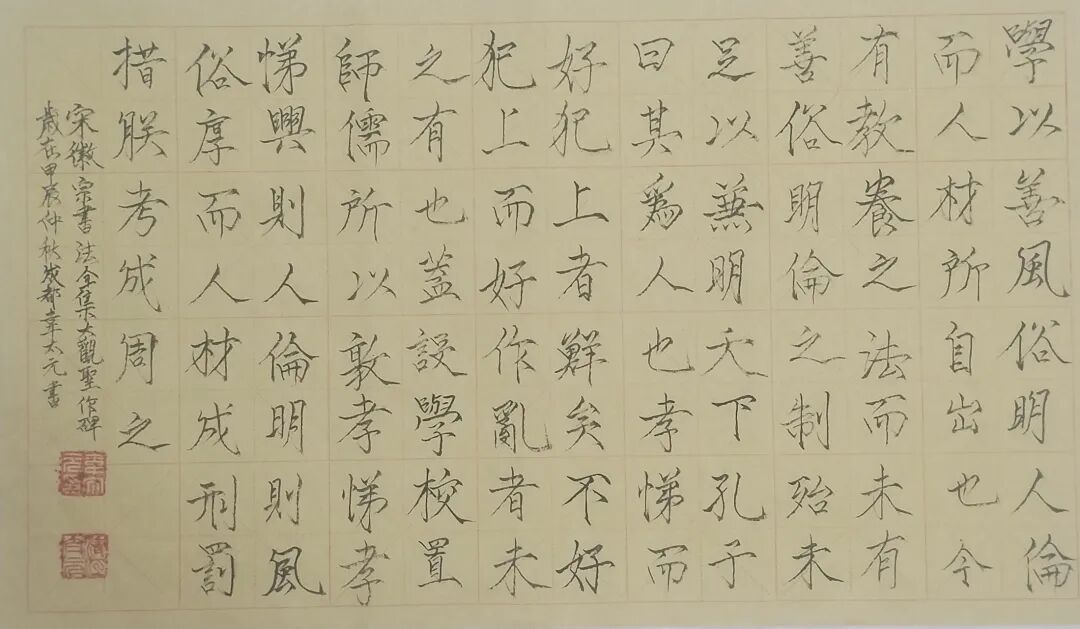 學以善風俗明人倫
而人材所自出也今
有教養之法而未有
善俗明倫之制殆未
足以兼明天下孔子
曰其爲人也孝悌而
好犯上者鮮矣不好
犯上而好作亂者未
之有也蓋設學校置
師儒所以敦孝悌孝
悌興則人倫明則風
俗厚而人材成刑罰
措朕考成周之
宋徽宗書法全集大觀聖作碑
歲在甲辰仲秋成都韋太元書